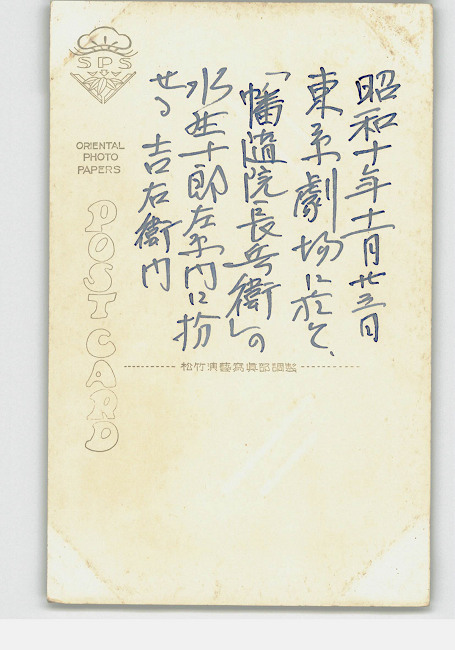 SPS
ORIENTAL
PHOTO
PAPERS
POST CARD
昭和十年十二月廿五日
東京劇場に於て、
「幡随院長兵衛」の
水野十郎左衛門に扮
せる吉右衛門
松竹演藝寫眞部調製